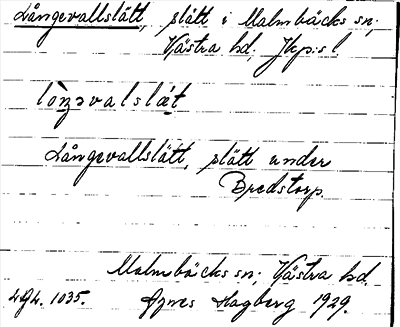 Långevallslätt, slätt i Malmbäcks sn;
Västra hd; Jkp:s l.
Långevallslätt, slätt under
Bredstorp.
Malmbäcks sn; Västra hd.
1035. Agnes Hagberg 1929.